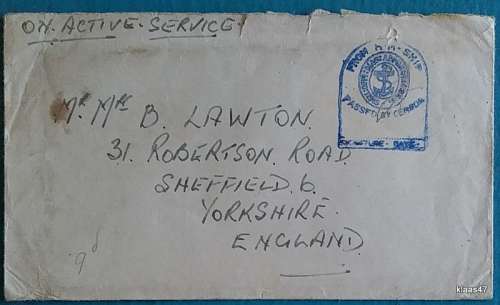 ON. ACTIVE. SERVICE.
FROM H.M. SHIP
PASSED BY CENSOR
SIGNATURE · DATE ·
Mr. Mrs B. LAWTON.
31. ROBERTSON. ROAD.
SHEFFIELD. 6.
YORKSHIRE.
ENGLAND.
9d
klaas47